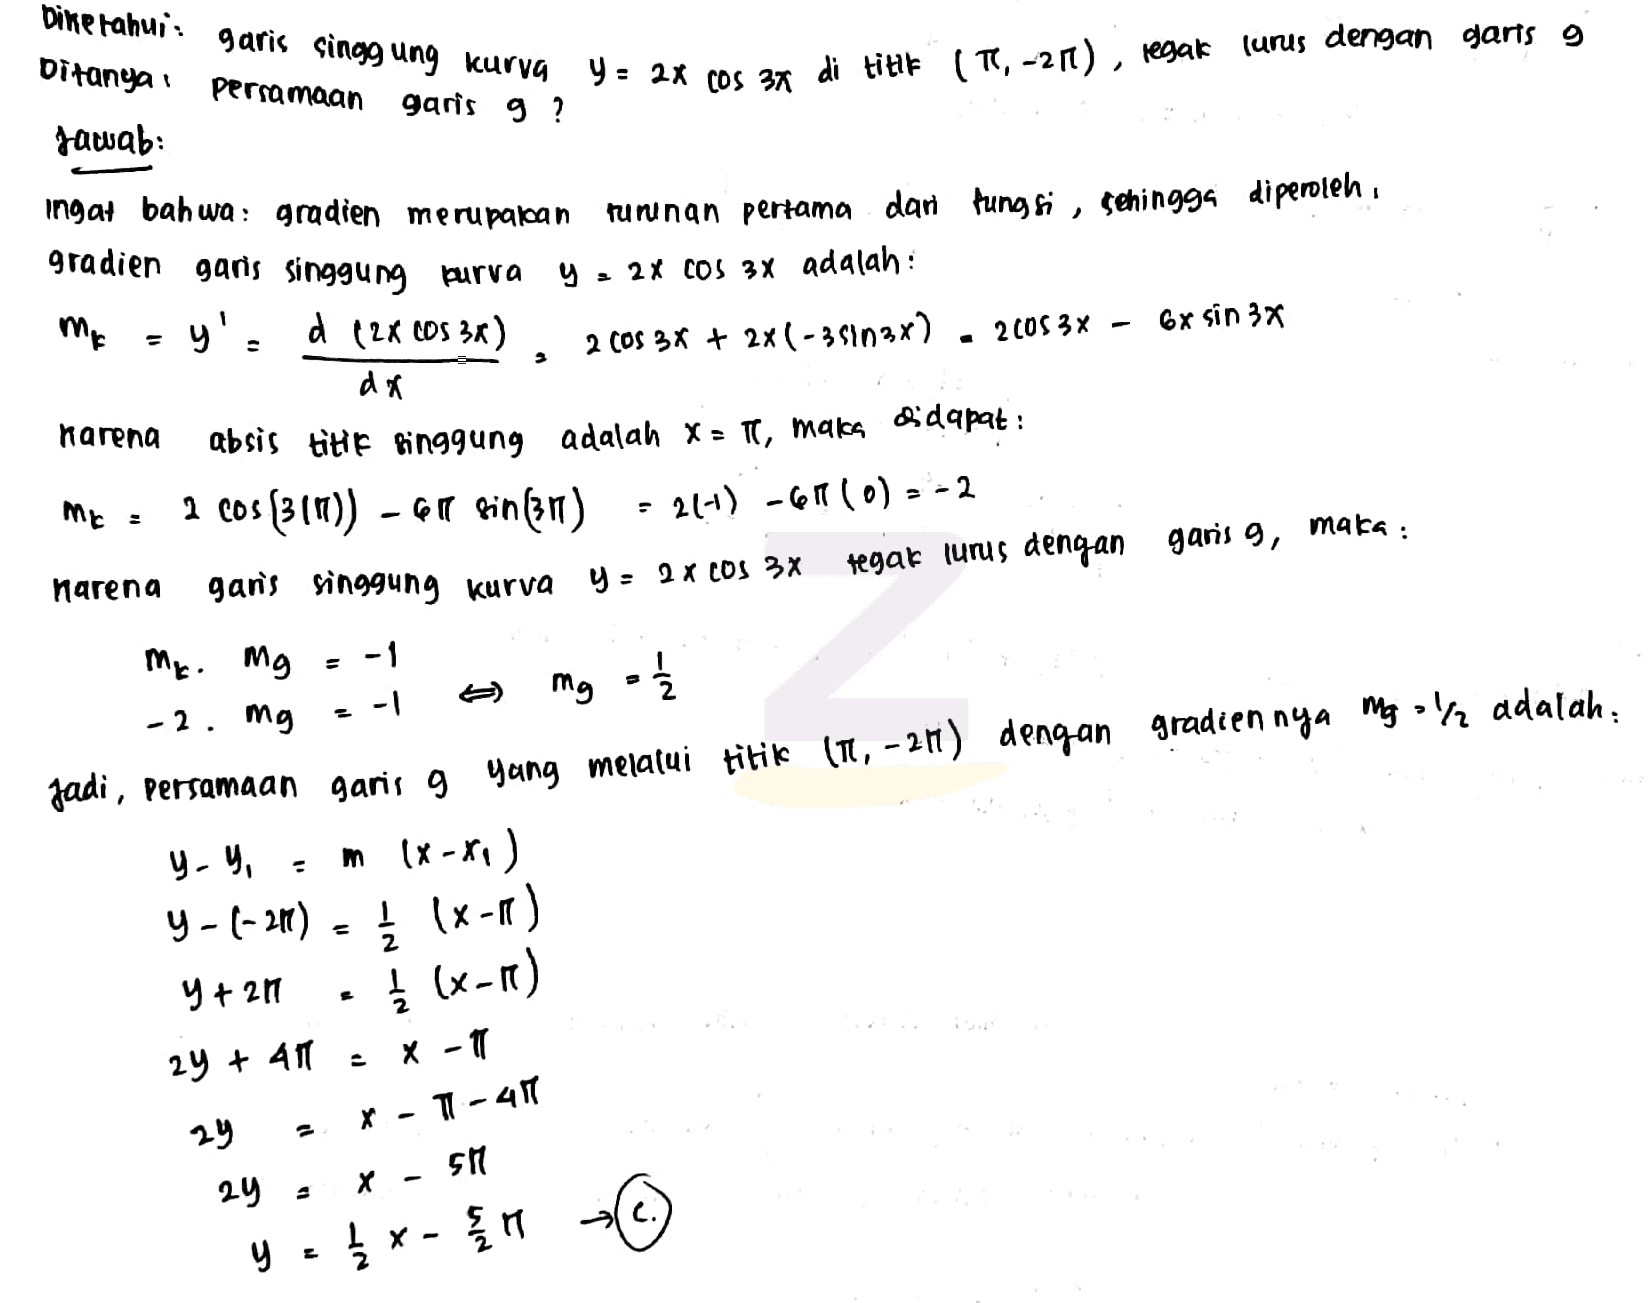 Diketahui: garis singgung kurva y = 2x cos 3x di titik (π, -2π), tegak lurus dengan garis g
Ditanya: persamaan garis g ?
Jawab:
Ingat bahwa: gradien merupakan turunan pertama dari fungsi, sehingga diperoleh,
gradien garis singgung kurva y = 2x cos 3x adalah:
mk = y' = d (2x cos 3x) / dx = 2 cos 3x + 2x (-3 sin 3x) = 2 cos 3x - 6x sin 3x
karena absis titik singgung adalah x = π, maka didapat:
mk = 2 cos (3(π)) - 6π sin (3π) = 2(-1) - 6π (0) = -2
karena garis singgung kurva y = 2x cos 3x tegak lurus dengan garis g, maka:
mk . mg = -1
-2 . mg = -1 ⇔ mg = 1/2
Jadi, persamaan garis g yang melalui titik (π, -2π) dengan gradiennya mg = 1/2 adalah:
y - y₁ = m (x - x₁)
y - (-2π) = 1/2 (x - π)
y + 2π = 1/2 (x - π)
2y + 4π = x - π
2y = x - π - 4π
2y = x - 5π
y = 1/2 x - 5/2 π → C.
Z